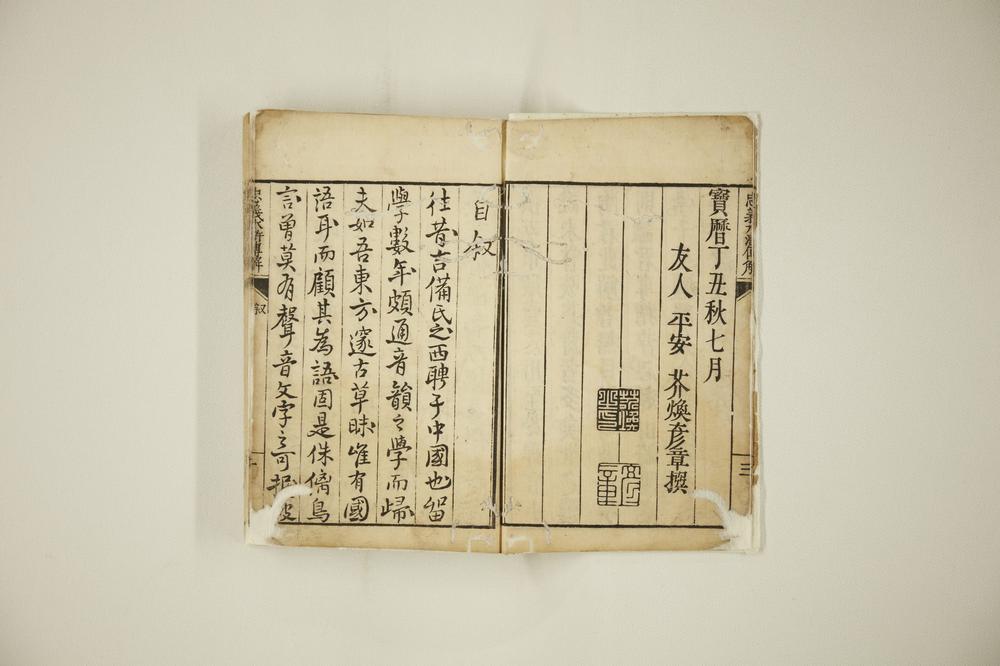 寶曆丁丑秋七月
友人 平安 芥煥彦章撰
三
自叙
往昔吉備氏之西聘于中國也留
學數年頗通音韻之學而歸
夫如吾東方邃古草昧唯有國
語耳而顧其為語固是侏㒧鳥
言曽莫有聲音文字之可據
忠義水滸傳解
叙